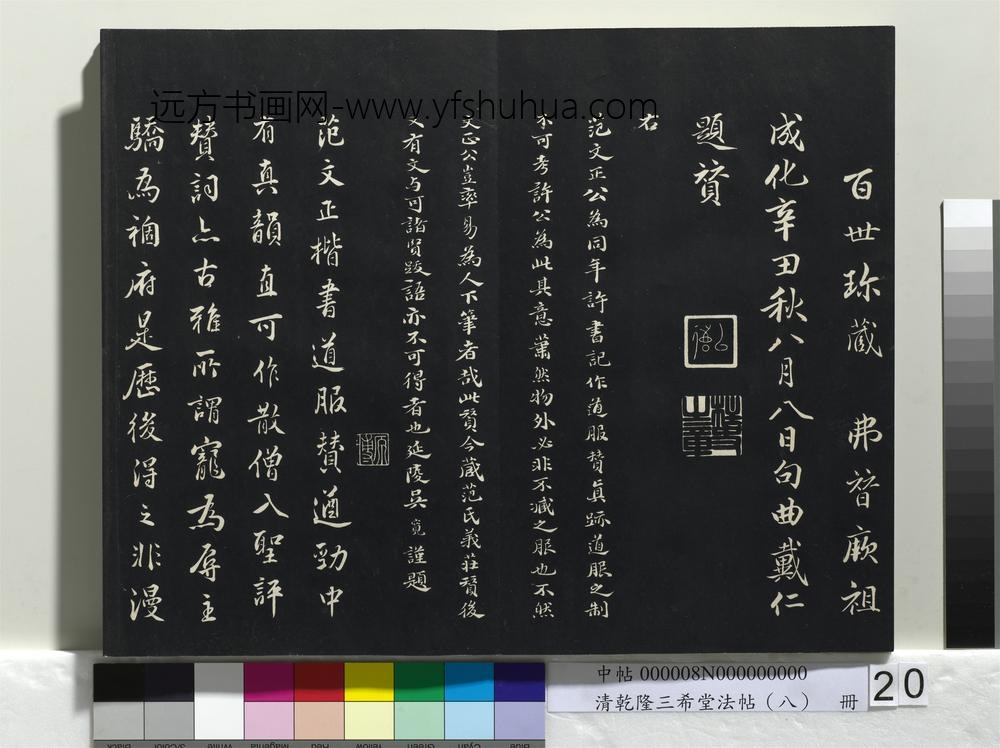 远方书画网-www.yfshuhua.com
百世珎藏 弗晉厥祖
成化辛丑秋八月八日句曲戴仁
題賛
右
范文正公為同年許書記作道服贊真跡道服之制
不可考許公為此其意蕭然物外必非不減之服也不然
文正公豈率易為人下筆者哉此賛今藏范氏義莊賛後
又有文与可諸賢跋語亦不可得者也延陵吳寬謹題
范文正楷書道服贊遒勁中
有真韻直可作散僧入聖評
贊詞亦古雅所謂寵為辱主
驕為禍府是歷後得之非漫
中帖 000008N000000000
清乾隆三希堂法帖（八） 冊
20
Black
3/Color
White
Magenta
Red
Yellow
Green
Cyan
Blue